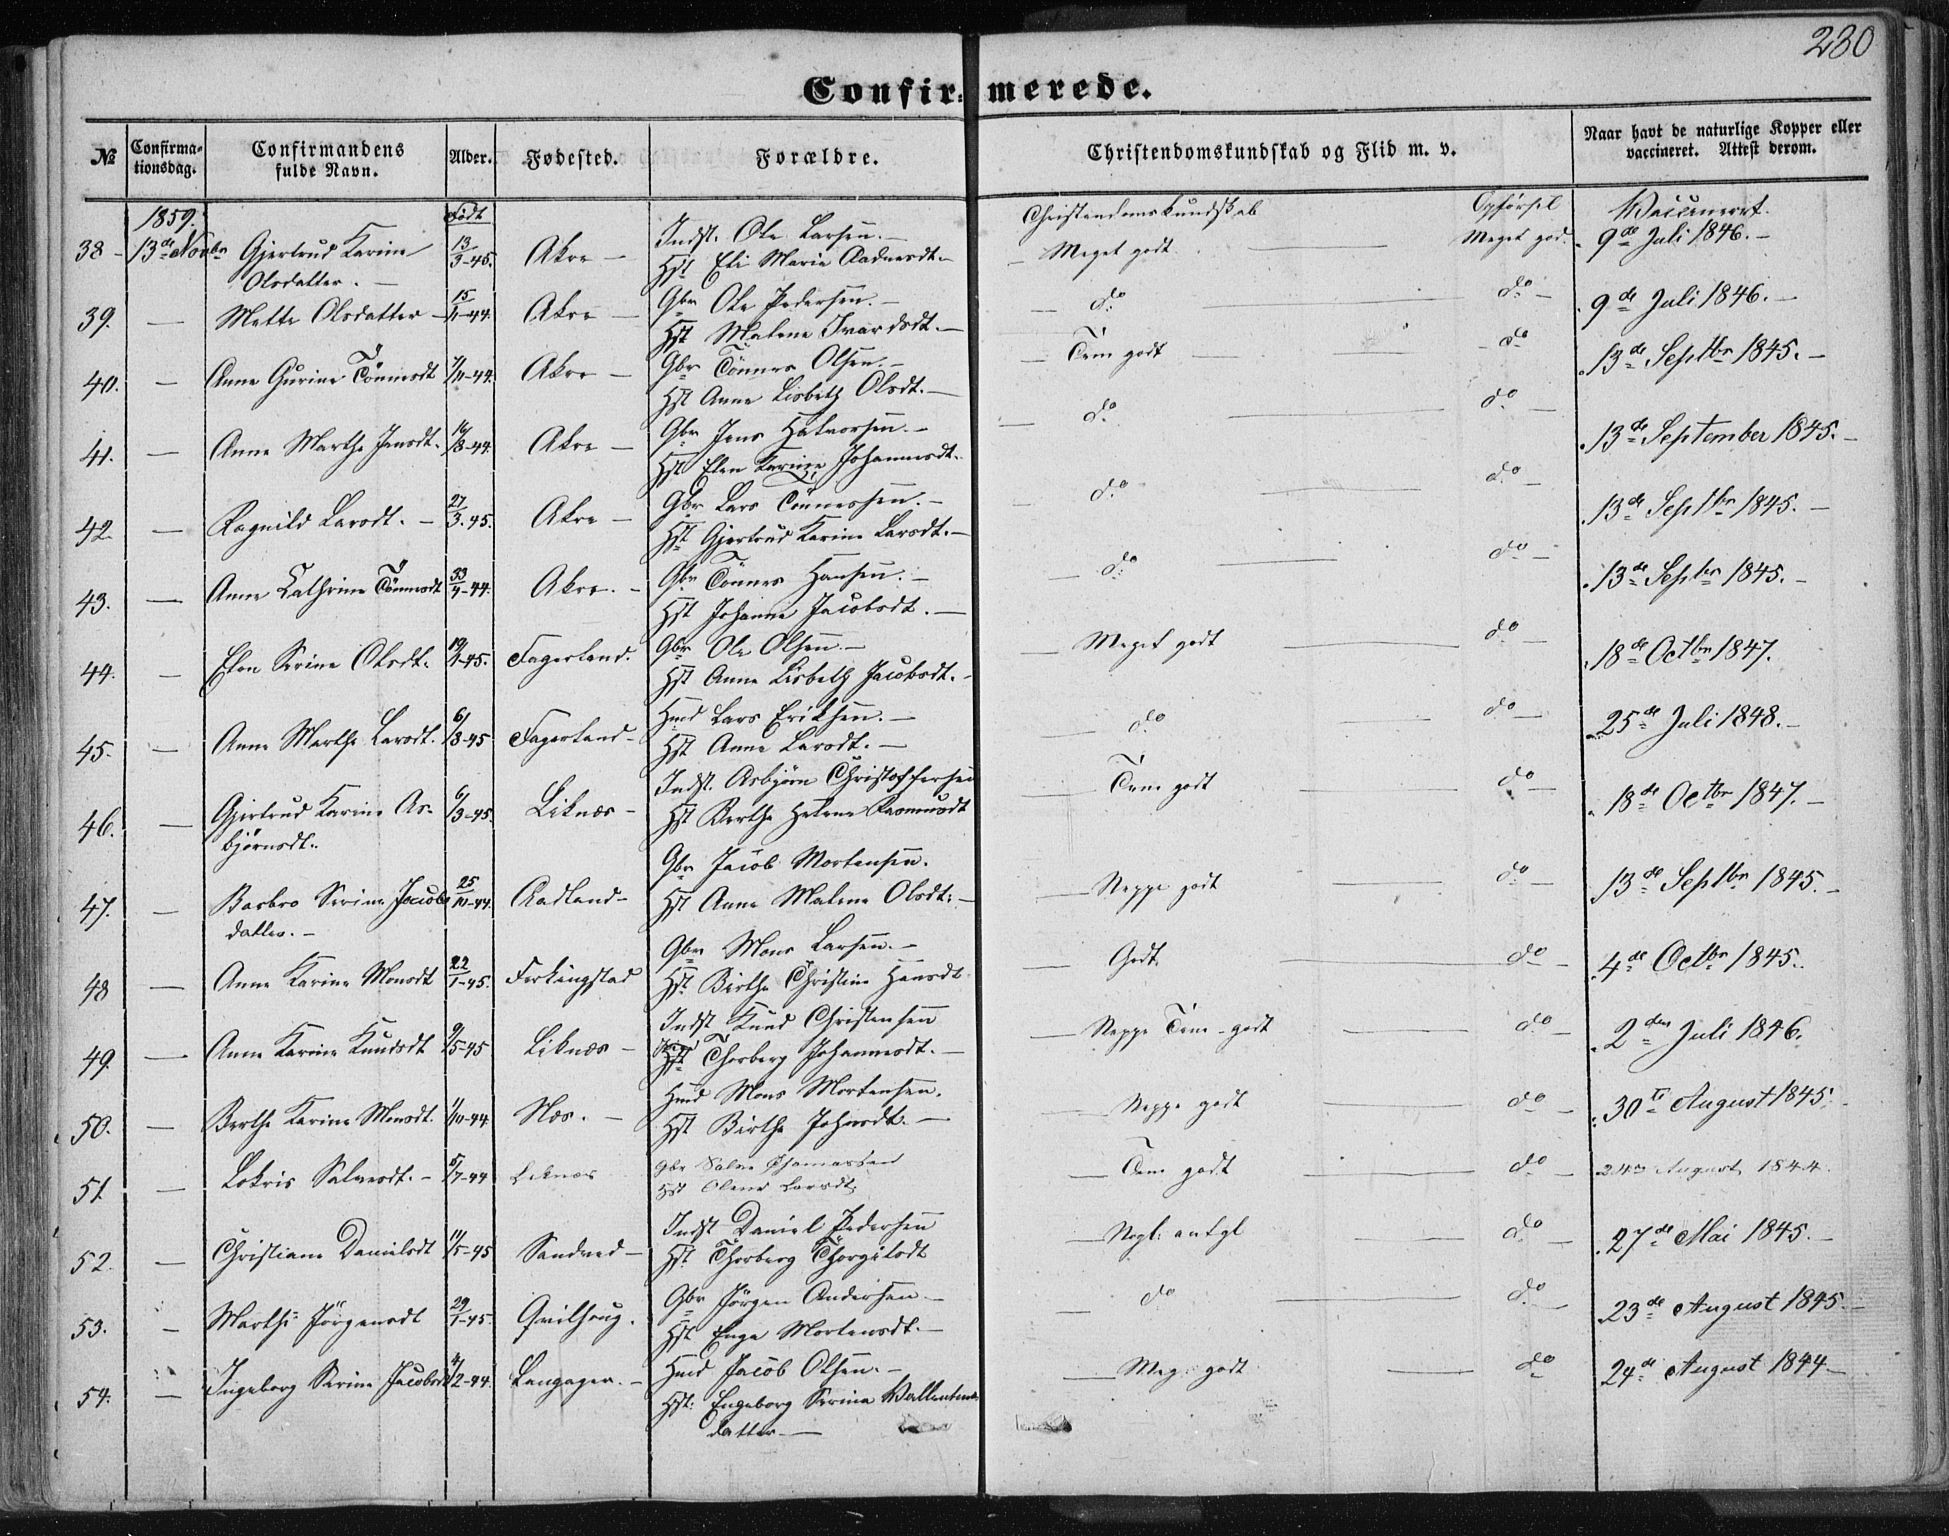 230
Confirmerede.
№ Confirmationsdag. Confirmandens fulde Navn. Alder. Fødested. Forældre. Christendomskundskab og Flid m. v. Naar havt de naturlige Kopper eller vaccineret. Attest derom.
1859. Født Christendomskundskab Opførsel Vaccineret.
38 - 13de Novbr Gjertrud Karine Olsdatter. - 13/3-45. Akre - Indst. Ole Larsen. - Meget godt Meget god. 9de Juli 1846. -
Hst Eli Marie Aadnesdt. -
39. - Mette Olsdatter - 15/11-44. Akre - Gbr Ole Pedersen. - do do - 9de Juli 1846. -
Hst Malene Ivarsdt. -
40. - Anne Gurine Tönnesdt 7/11-44. Akre - Gbr Tönnes Olsen. - Tem godt do 13de Septbr 1845. -
Hst Anne Lisbeth Olsdt. -
41. - Anne Marthe Jensdt. 16/8-44. Akre - Gbr Jens Halvorsen. - do do - 13de September 1845. -
Hst Elen Karine Johannesdt.
42. - Ragnild Larsdt. - 27/3-45. Akre - Gbr Lars Tönnessen. - do do - 13de Septbr 1845. -
Hst Gjertrud Karine Larsdt. -
43. - Anne Cathrine Tönnesdt -44. Akre. - Gbr Tönnes Hansen. - do do - 13de Septbr 1845. -
Hst Johanne Jacobsdt. -
44. - Elen Serine Olsdt. -45. Fagerland. Gbr Ole Olsen. - Meget godt do - 18de Octbr 1847.
Hst Anne Lisbeth Jacobsdt. -
45. - Anne Marthe Larsdt. 6/3-45 Fagerland - Hmd Lars Eriksen. - do do - 25de Juli 1848. -
Hst Anne Larsdt. -
46. - Gjertrud Karine Asbjørnsdt. 6/3-45. Liknæs - Indst. Asbjørn Christoffersen Tem godt do - 18de Octbr 1847. -
Hst Berthe Helene Rasmusdt
47. - Barbro Serine Jacobsdatter. - 25/10-44. Aadland - Gbr Jacob Mortensen. Neppe godt do - 13de Septbr 1845. -
Hst Anne Malene Olsdt. -
48 - Anne Karine Monsdt 22/1-45. Ferkingstad Gbr Mons Larsen. - Godt do - 4de Octbr 1845.
Hst. Birthe Christine Hansdt.
49. - Anne Karine Knudsdt 9/5-45 Liknæs - Indst Knud Christensen Neppe Tem - godt do - 2den Juli 1846.
Thorberg Johannesdt. -
50. - Berthe Karine Monsdt. 1/10-44. Næs. - Hmd Mons Mortensen. Neppe godt do - 30te August 1845.
Hst Birthe Johnsdt. -
51 - Lokris Salvesdt. - 5/7-44 Liknæs Gbr Salve Thomassen Tem godt do - 24de August 1844.
Hst Olene Larsdt
52. - Christiane Danielsdt 11/5-45 Sandved - Indst Daniel Pedersen Nogl: antgl do - 27de Mai 1845. -
Hst. Thorberg Thorgilsdt
53. - Marthe Jörgensdt 29/1-45. Qvilhaug. Gbr Jörgen Andersen - do do - 23de August 1845. -
Hst Enge Mortensdt. -
54. - Ingeborg Serine Jacobsdt 4/2-44. Langager. - Hmd Jacob Olsen. - Meg: godt do 24de August 1844 -
Hst: Engeborg Serine Wallentinsdatter. -